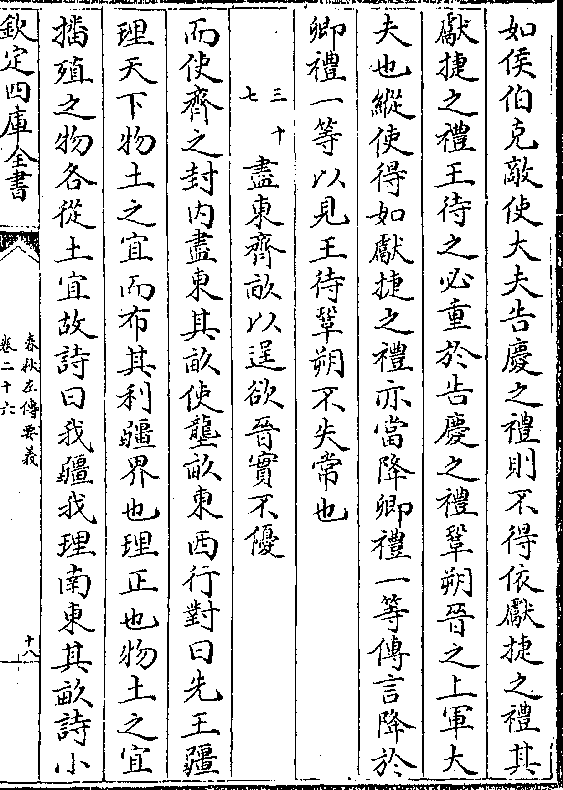 如侯伯克敵使大夫告慶之禮則不得依獻捷之禮其
獻捷之禮王待之必重於告慶之禮鞏朔晉之上軍大
夫也縱使得如獻捷之禮亦當降卿禮一等傳言降於
卿禮一等以見王待鞏朔不失常也
三十七
盡東齊畝以逞欲晉實不優
而使齊之封内盡東其畝使壟畝東西行對曰先王疆
理天下物土之宜而布其利疆界也理正也物土之宜
播殖之物各從土宜故詩曰我疆我理南東其畝詩小
欽定四庫全書
春秋左傳要義
卷二十六
十八